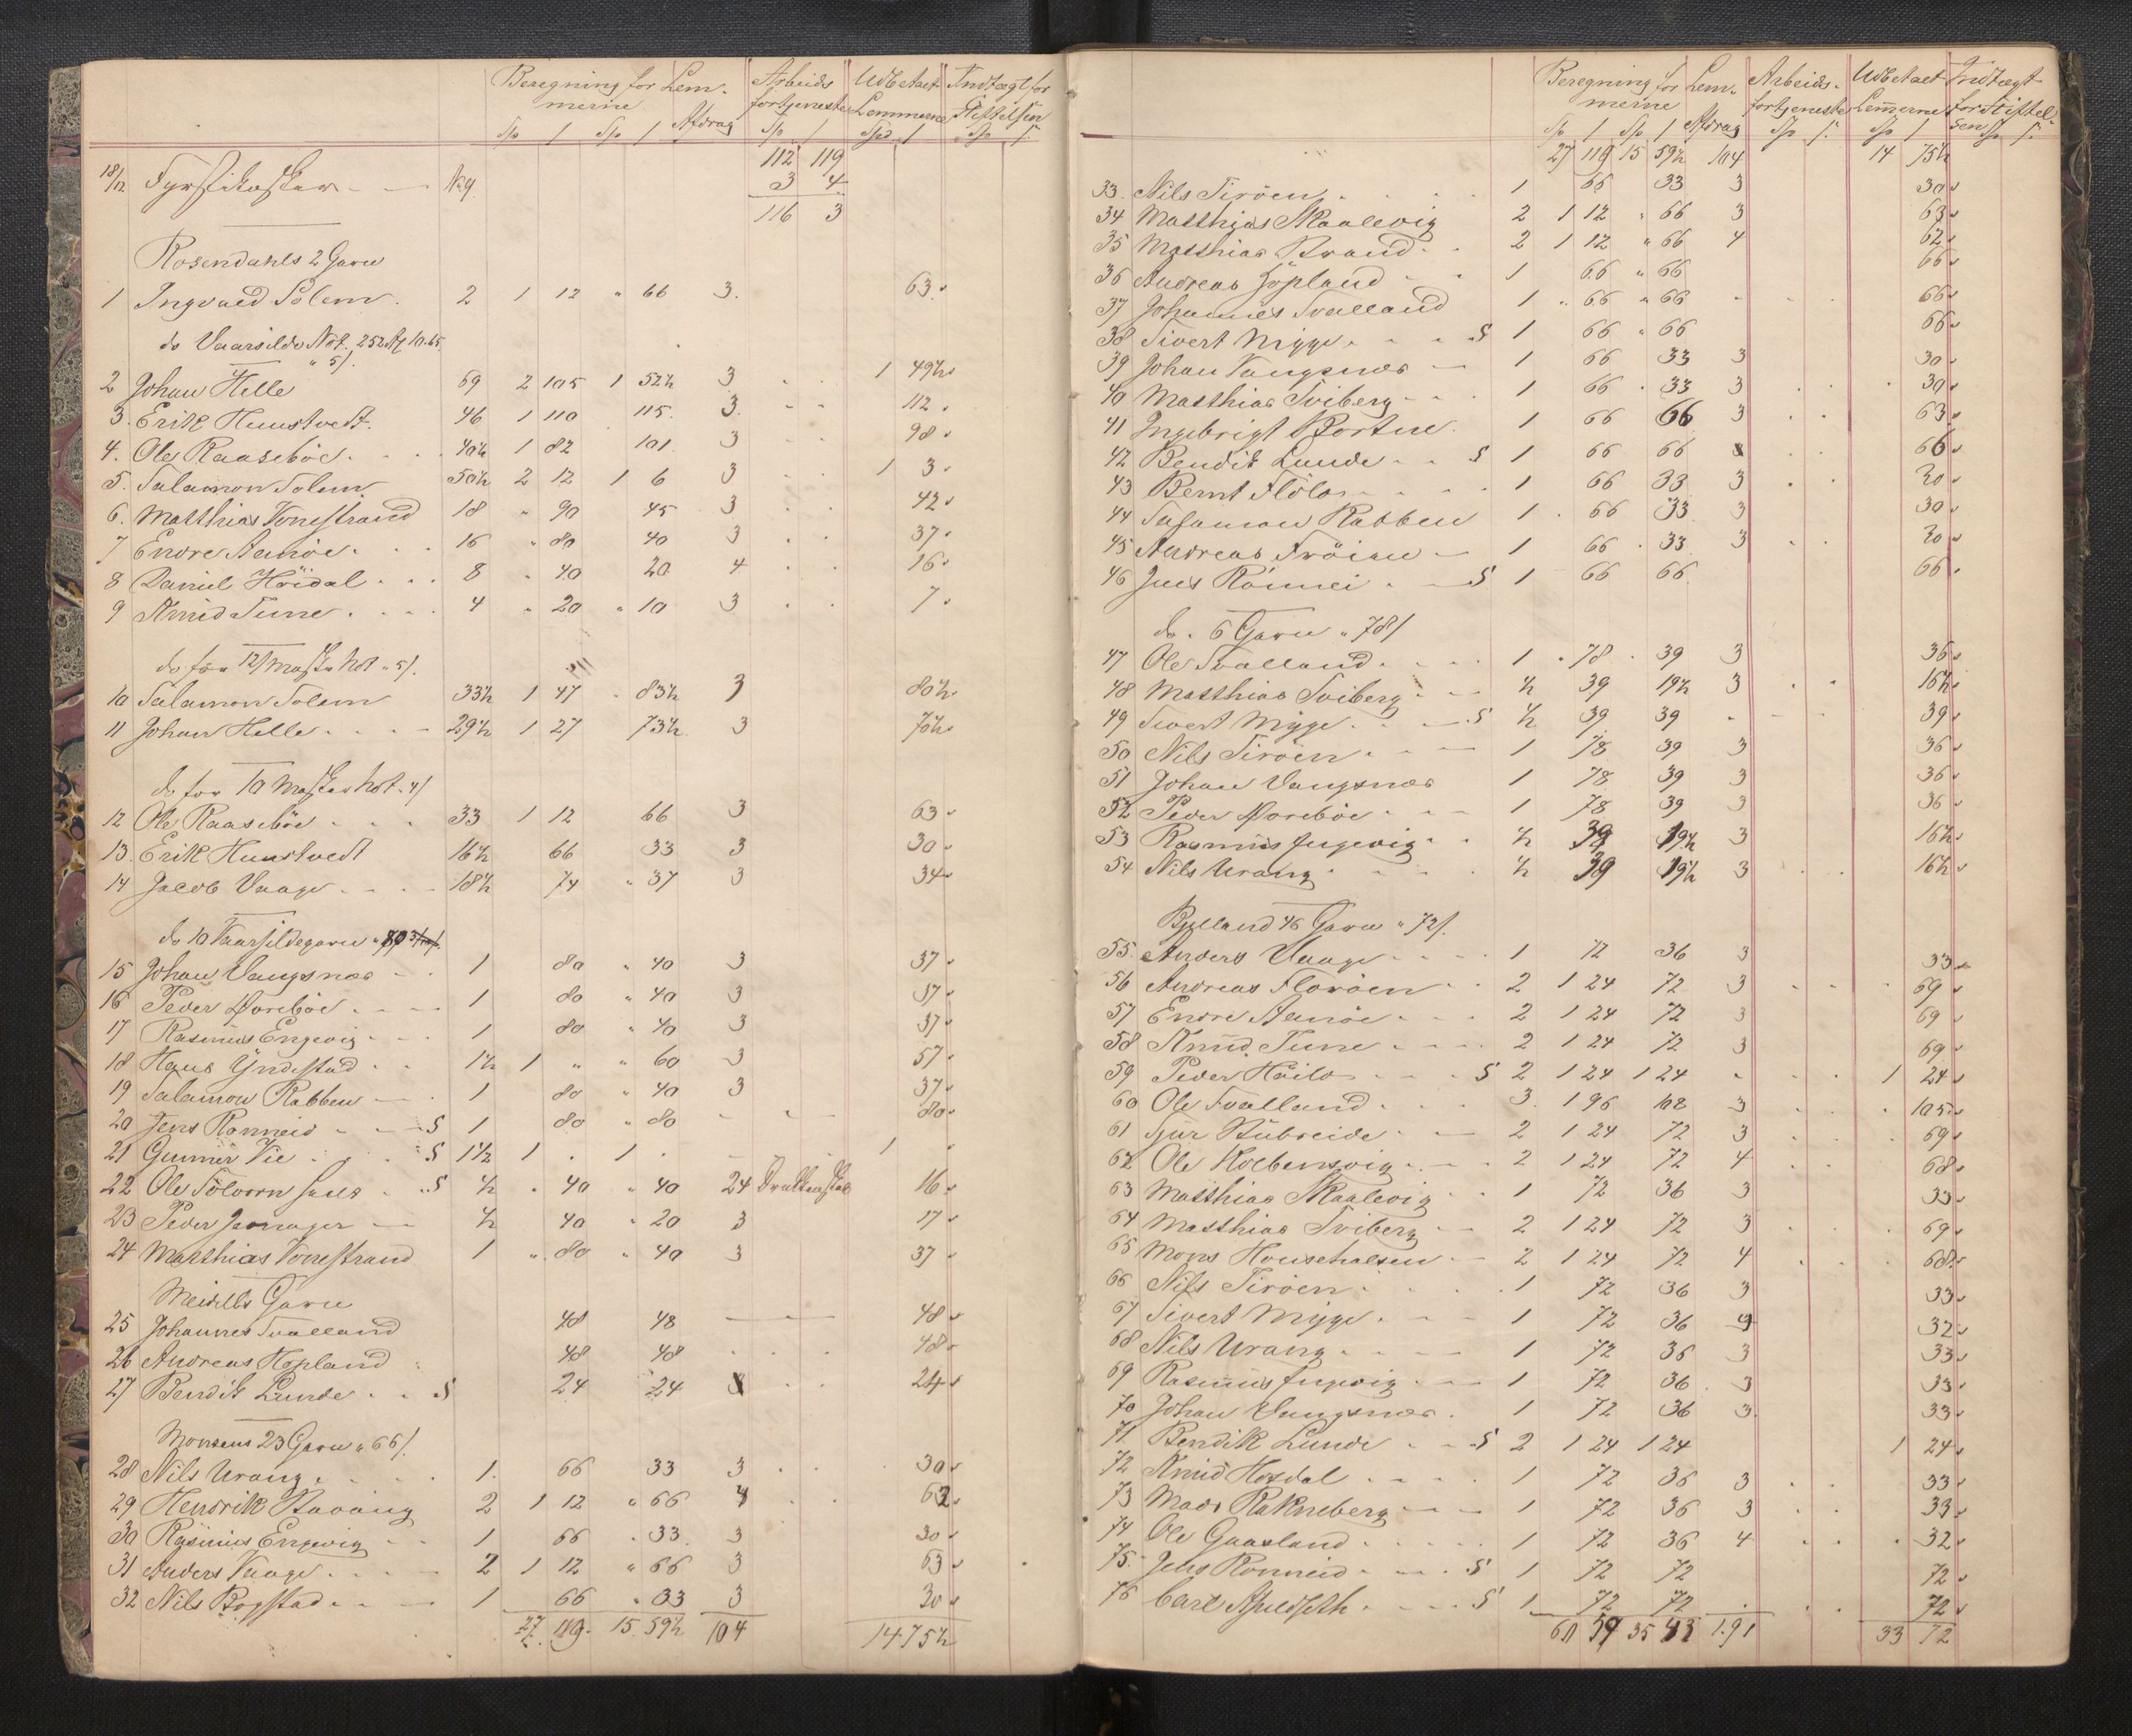 Beregning for Lem- Arbeids Udbetalt Indtægt for
merne fortjeneste Lemmerne Stiftelsen
Sp / Sp / Afdrag Sp / Spd / Sp /
112 119
18/12 Fyrstikæsker No 9. 3 4
116 3
Rosendahls 2 Garn
1 Ingvald Solem. 2 1 12 " 66 3. 63.
do Vaarsilde Not. 252 10.65.
" 5/.
2 Johan Helle 69 2 105 1 52½ 3 1 49½
3. Erik Hunstvedt. 46 1 110 115. 3. 112.
4. Ole Raasebøe 40½ 1 82 101 3 98
5. Salamon Solem 50½ 2 12 1 6 3 1 3.
6. Matthias Vonestrand 18 " 90 45 3 42
7 Endre Aenøe 16 " 80 40 3 37
8 Daniel Höidal 8 40 20 4 16
9 Knud Tune 4 20 " 10 3 7
do for 12/ Maske Not " 5/.
10 Salamon Solem 33½ 1 47 83½ 3 80½
11 Johan Helle 29½ 1 27 73½ 3 70½
do for 10 Maskes Not " 4/
12 Ole Raasebøe 33 1 12 66 3 63
13. Erik Hunstvedt 16½ 66 33 3 30
14 Jacob Vaage 18½ 74 " 37 3 34
do 10 Vaarsildegarn " 80
15 Johan Vangsnæs 1 80 " 40 3 37
16 Peder Horebøe 1 80 " 40 3 37
17 Rasmus Engevig 1 80 " 40 3 37
18 Hans Yndestad 1½ 1 " " 60 3 57
19 Salamon Rabben 1 80 " 40 3 37
20 Jens Ronneid S 1 80 " 80 80
21 Gunner Vie S 1½ 1 . 1 . 1
22 Ole Solvorn S ½ 40 " 40 24 16
23 Peder ½ 40 " 20 3 17
24 Matthias Vonestrand 1 " 80 " 40 3 37
Meidells Garn
25 Johannes Svalland 48 48 48
26 Andreas Hopland 48 48 48
27 Bendik Lunde S 24 24 24
Monsens 23 Garn " 66/.
28 Nils Urang 1. 66 33 3 30
29 Hendrik Stavang 2 1 12 " 66 4 62
30 Rasmus Engevig 1 66 33 3 30
31 Anders Vaage 2 1 12 " 66 3 63
32 Nils Bogstad 1 66 33 3 30
27 119. 15. 59½ 104 14 75½
Beregning for Lem- Arbeids- Udbetalt Indtægt
merne fortjeneste Lemmerne for Stiftel-
Sp / Sp / Afdrag Sp /. Sp / sen Sp /.
27 119 15 59½ 104 14 75½
33. Nils Tirøen 1 66 33 3 30
34 Matthias Skaalevig 2 1 12 " 66 3 63
35 Matthias Brand 2 1 12 " 66 4 62
36 Andreas Höpland 1 66 " 66 66
37 Johannes Svalland 1 66 " 66 66
38 Sivert Myge S 1 66 " 66 66
39 Johan Vangsnæs 1 66 33 3 30
40 Matthias Sviberg 1 66 33 3 30
41 Ingebrigt Bortne. 1 66 66 3 63
42 Bendik Lunde S 1 66 66 66
43 Bernt Flölo 1 66 33 3 30
44 Salamon Rabben 1 66 33 3 30
45 Andreas Fröian 1 66 33 3 30
46 Jens Rönnei S 1 66 66. 66
do. 6 Garn " 78/
47 Ole Svalland 1 78 39 3 36
48 Matthias Sviberg ½ 39 19½ 3 16½
49 Sivert Myge S ½ 39 39 39
50 Nils Tirøen 1 78 39 3 36
51 Johan Vangsnæs 1 78 39 3 36
52 Peder Horebøe 1 78 39 3 36
53 Rasmus Engevig ½ 39 19½ 3 16½
54 Nils Urang ½ 39 19½ 3 16½
Bjelland 46 Garn " 72/.
55. Anders Vaage 1 72 36 3 33
56 Andreas Florøen 2 1 24 72 3 69
57 Endre Aenøe 2 1 24 72 3 69
58 Knud Tune 2 1 24 72 3 69
59 Peder Höilo S 2 1 24 1 24 1 24
60 Ole Svalland 3. 1 96 108 3 105
61 Sjur Stubreide 2 1 24 72 3 69
62 Ole Kolbensvig 2 1 24 72 4 68
63 Matthias Skaalevig 1 72 36 3 33
64 Matthias Sviberg 2 1 24 72 3 69
65 Mons Househalsen 2 1 24 72 4 68
66 Nils Tirøen 1 72 36 3 33
67 Sivert Myge 1 72 36 4 32
68 Nils Urang 1 72 36 3 33
69 Rasmus Engevig 1 72 36 3 33
70 Johan Vangsnæs. 1 72 36 3. 33
71. Bendik Lunde S 2 1 24 1 24 1 24
72 Knud Hozdal 1 72 36 3 33
73 Mads Rakneberg 1 72 36 3 33
74 Ole Gaasland 1 72 36 4 32
75. Jens Ronneid S 1 72 72 72
76 Carl Apeldseth S 1 72 72 72
60 59 35 43 1.91 33 72